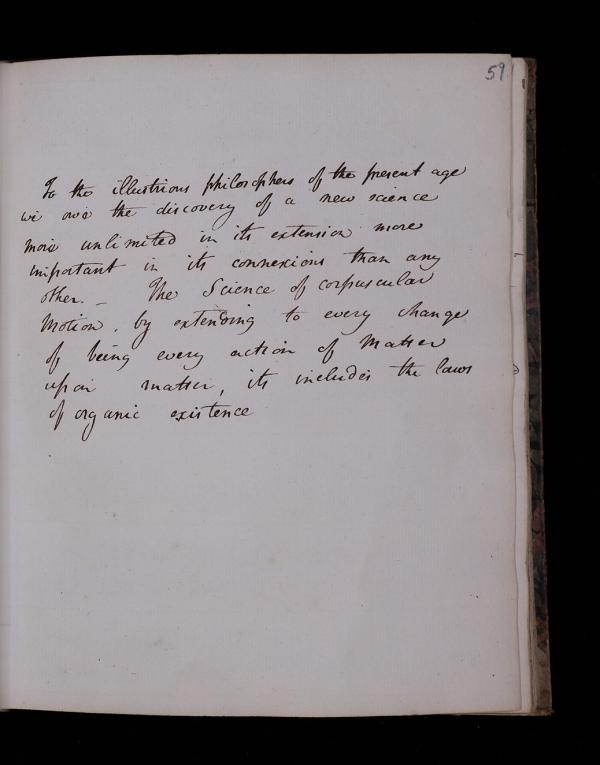 59
To the illustrious philosophers of the present age
we owe the discovery of a new science
more unlimited in its extension more
important in its connexions than any
other. _ The Science of corpuscular
Motion, by extending to every change
of being every action of Matter
upon matter, its includes the laws
of organic existence